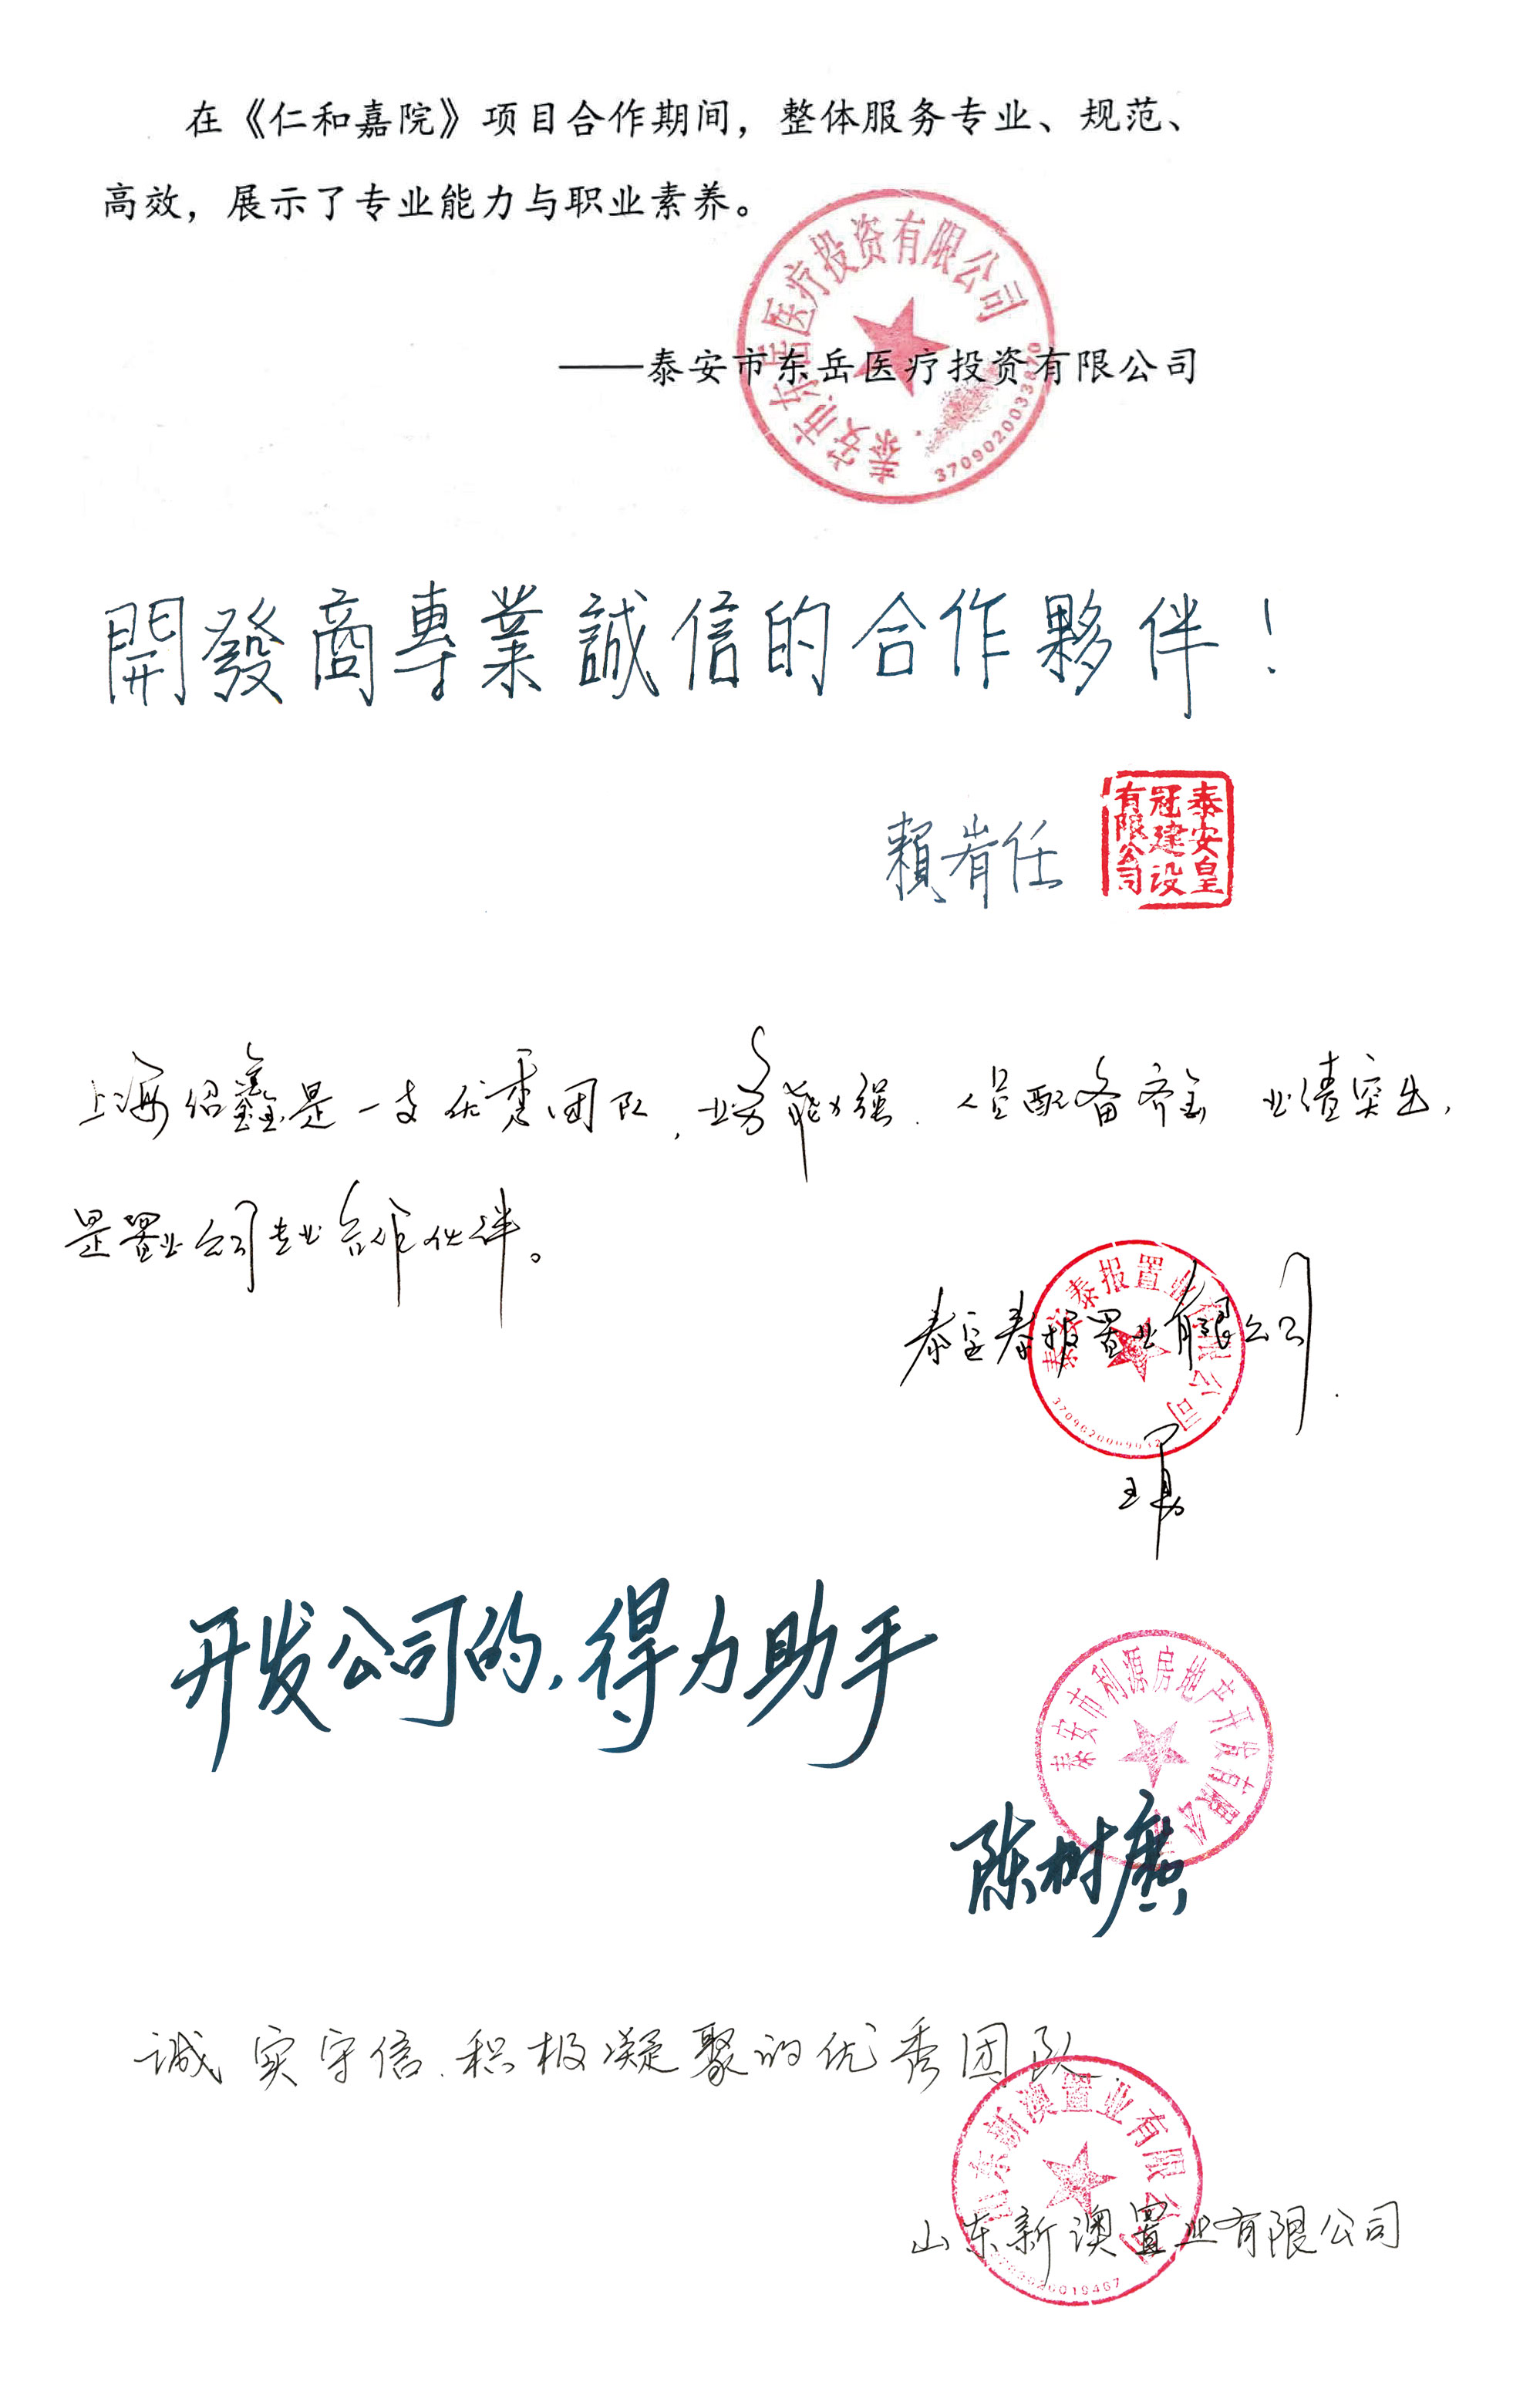 在《仁和嘉院》项目合作期间，整体服务专业、规范、
高效，展示了专业能力与职业素养。
泰安市东岳医疗投资有限公司
3709020033870
——泰安市东岳医疗投资有限公司
開發商專業誠信的合作夥伴！
賴 任
泰安皇
冠建设
有限公司
上海绍鑫是一支优秀团队，业务能力强. 人员配备齐全 业绩突出，
是置业公司专业合作伙伴。
泰安泰报置业有限公司
泰安泰报置业有限公司.
王勇
开发公司的，得力助手
泰安市利源房地产开发有限公司
陈树广
诚实守信.积极凝聚的优秀团队.
山东新澳置业有限公司
山东新澳置业有限公司